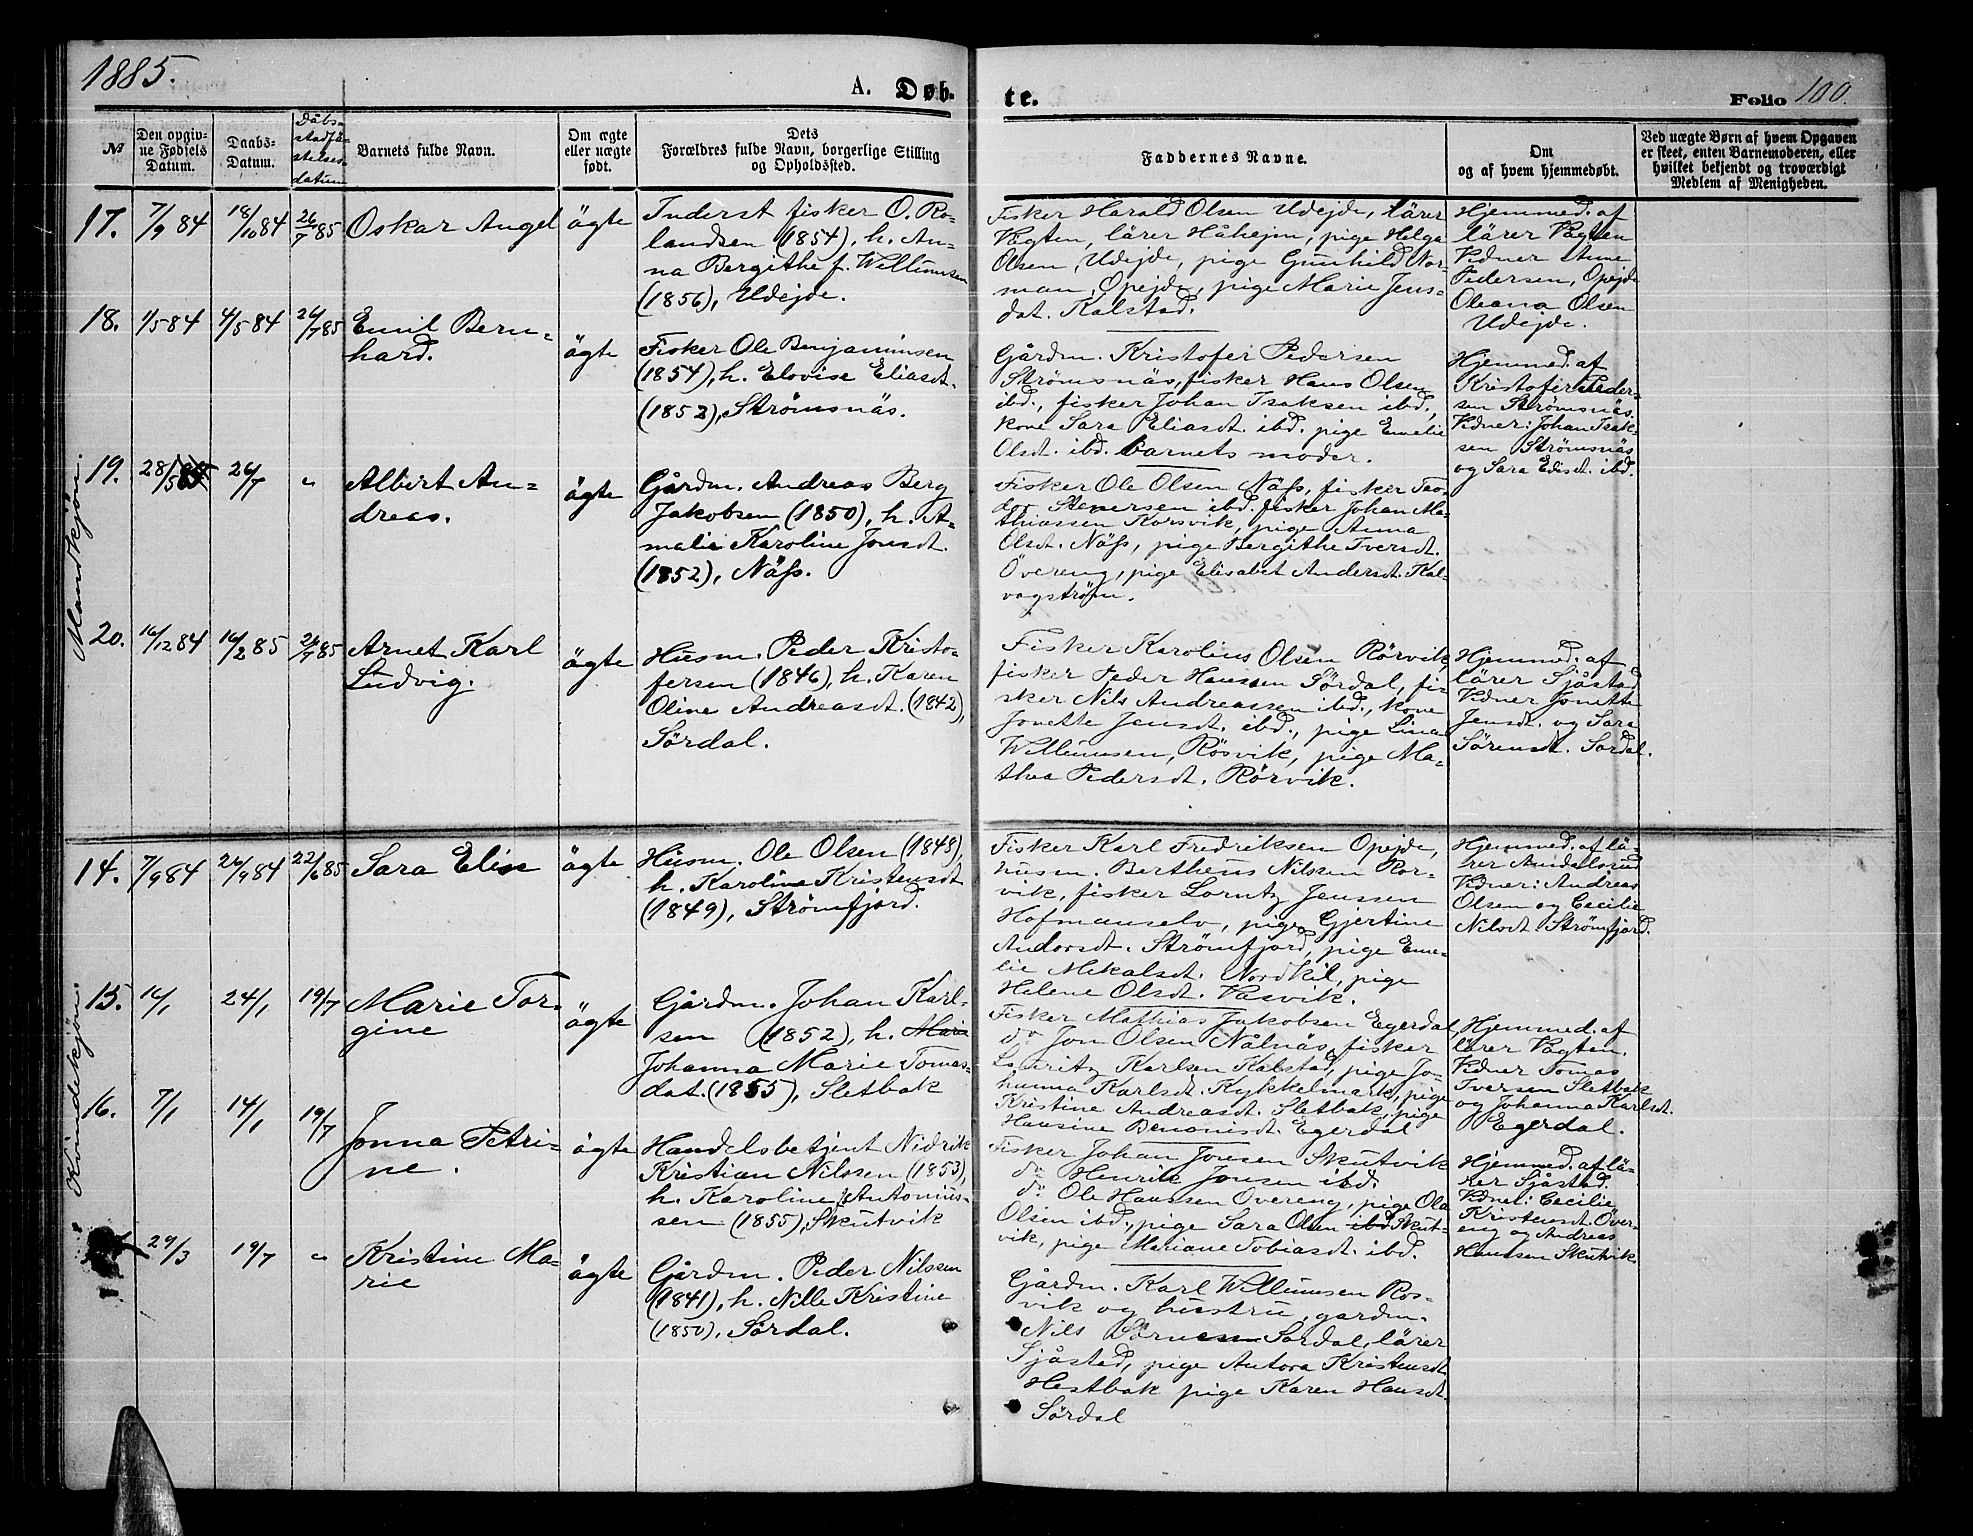 1885.
A. Døb-
te.
Folio 100.
№
Den opgiv-
ne Fødsels
Datum.
Daabs-
Datum.
Dåbs-
stadfä-
stelses-
datum
Barnets fulde Navn.
Om ægte
eller uægte
født.
Dets
Forældres fulde Navn, borgerlige Stilling
og Opholdssted.
Faddernes Navne.
Om
og af hvem hjemmedøbt.
Ved uægte Børn af hvem Opgaven
er skeet, enten Barnemoderen, eller
hvilket bekjendt og troværdigt
Medlem af Menigheden.
Mandkjøn.
17.
7/9 84
18/10 84
26/7 85
Oskar Angel
ägte
Inderst fisker O. Ro-
landsen (1854), h. An-
na Bergithe f. Willumsen
(1856), Udejde.
Fisker Harald Olsen Udejde, lärer
Vagten, lärer Håhejm, pige Helga
Olsen, Udejde, pige Gunhild Nor-
man, Opejde, pige Marie Jens-
dat. Kalstad.
Hjemmed. af
lärer Vagten
Vidner Anne
Pedersen, Opejde
Oleana Olsen
Udejde.
18.
1/5 84
4/5 84
26/7 85
Emil Bern-
hard.
ägte
Fisker Ole Benjaminsen
(1854), h. Elovise Eliasdt.
(1852), Strömsnäs.
Gårdm. Kristofer Pedersen
Strömsnäs, fisker Hans Olsen
ibd., fisker Johan Isaksen ibd.,
kone Sara Eliasdt. ibd. pige Emelie
Olsdt. ibd. barnets moder.
Hjemmed. af
Kristofer Peder-
sen Strömsnäs.
Vidner: Johan Isak-
sen Strömsnäs
og Sara Elisdt. ibd.
19.
28/5
26/7
"
Albert An-
dreas.
ägte
Gårdm. Andreas Berg
Jakobsen (1850), h. A-
malie Karoline Jonsdt.
(1852), Näss.
Fisker Ole Olsen Näss, fisker Teo-
dor Stenersen ibd. fisker Johan Ma-
thiassen Korsvik, pige Anna
Olsdt. Näss, pige Bergithe Iversdt.
Övereng, pige Elisabet Andersdt. Kal-
vagström.
20.
16/12 84
16/2 85
26/7 85
Arnet Karl
Ludvig.
ägte
Husm. Peder Kristo-
fersen (1846), h. Karen
Oline Andreasdt. (1842),
Sördal.
Fisker Karolius Olsen Rörvik,
fisker Peder Hansen Sördal, fi-
sker Nils Andreassen ibd., kone
Jonette Jensdt. ibd., pige Lina
Willumsen, Rösvik, pige Ma-
thea Pedersdt. Rörvik.
Hjemmed. af
lärer Sjåstad
Vidner Jonette
Jensdt. og Sara
Sörensdt. Sördal.
Kvindekjøn.
14.
7/9 84
26/9 84
22/6 85
Sara Elise
ägte
Husm. Ole Olsen (1848),
h. Karoline Kristensdt
(1849), Strömfjord.
Fisker Karl Fredriksen Opejde,
husm. Bertheus Nilssen Ror-
vik, fisker Lorntz Jenssen
Hofmanselv, pige Gjertine
Andorsdt. Strömfjord, pige Eme-
lie Mekalsdt. Nordkil, pige
Helene Olsdt. Vasvik.
Hjemmed. af lä-
rer Amdalsrud
Vidner: Andreas
Olsen og Cecilie
Nilsdt Strömfjord.
15.
16/1
24/1
19/7
Marie Tor-
gine
ägte
Gårdm. Johan Karl-
sen (1852), h. Marie
Johanna Marie Tomas-
dat. (1855), Sletbak
Fisker Mathias Jakobsen Egerdal
do Jon Olsen Nålnäs, fisker
Lauritz Karlsen Kalstad, pige Jo-
hanna Karlsdt. Kykkelmark, pige
Kristine Andreasdt. Sletbak, pige
Hansine Benonisdt. Egerdal
Hjemmed. af
lärer Vagten.
Vidner Tomas
Iversen Sletbak
og Johanna Karlsdt.
Egerdal.
16.
7/1
14/1
19/7
Jonna Petri-
ne.
ägte
Handelsbetjent Nidrik
Kristian Nilssen (1853),
h. Karoline f. Antonius-
sen (1855), Skutvik
Fisker Johan Jonsen Skutvik
do Henrik Jonsen ibd.
do Ole Hanssen Övereng, pige Ola
Olsen ibd., pige Sara Olsen ibd Skut-
vik, pige Mariane Tobiasdt. ibd.
Hjemmed. af lä-
rer Sjåstad.
Vidner: Cecilie
Kristensdt. Över-
eng og Andreas
Hanssen Skutvik.
29/3
19/7
"
Kristine Ma-
rie
ägte
Gårdm. Peder Nilssen
(1841), h. Nille Kristine
(1850), Sördal.
Gårdm. Karl Willumsen Ros-
vik og hustru, gardm.
Nils Sörensen Sördal, lärer
Sjåstad, pige Antora Kristensdt
Hestbak pige Karen Hansdt.
Sördal